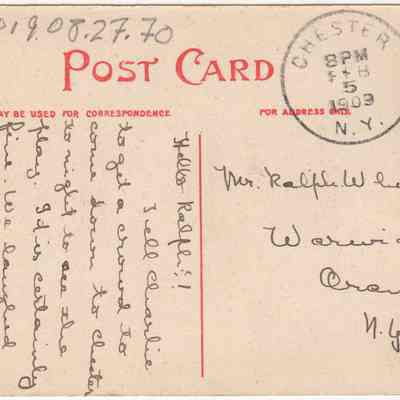 019.08.27.70
POST CARD
CHESTER
8PM
FEB
5
1909
N.Y.
MAY BE USED FOR CORRESPONDENCE
FOR ADDRESS ONLY
Hello Ralph!!
Tell Charlie
to get a crowd to
come down to Chester
to night to see the
play. It is certainly
fine. We laughed
Mr. Ralph Whe
Warwic
Oran
N.Y